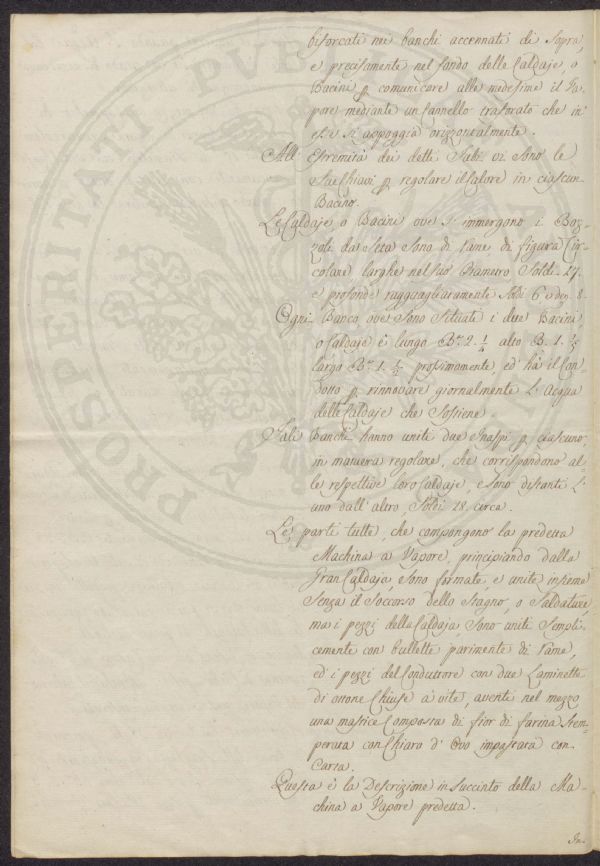 biforcati nei banchi accennati di Sopra,
e precisamente nel fondo delle Caldaje, o
Bacini p. comunicare alle medesime il Va-
pore mediante un Cannello traforato che in
esse si appoggia orizzontalmente.
All' Estremità dei detti Tubi vi Sono le
Sue Chiavi p. regolare il Calore in ciascun
Bacino.
Le Caldaje, o Bacini ove s' immergono i Boz-
zoli da Seta Sono di rame di figura Cir-
colare larghe nel suo Diametro Soldi 17.
e profonde ragguagliatamente Soldi 6 e den. 8.
Ogni Banco ove Sono Situati i due Bacini
o Caldaje è lungo B.a 2. ¼ alto B. 1. ⅓
largo B.a 1. ½ prossimamente, ed ha il Con-
dotto p. rinnovare giornalmente l' Acqua
delle Caldaje che Sostiene.
Tali Banchi hanno uniti due Naspi p. ciascuno
in maniera regolare, che corrispondono al-
le respettive loro Caldaje, e Sono distanti l'
uno dall' altro, Soldi 18. circa.
Le parti tutte, che compongono la predetta
Machina a Vapore, principiando dalla
Gran Caldaja, Sono formate, e unite insieme
Senza il Soccorso dello Stagno, o Saldature,
ma i pezzi della Caldaja, Sono uniti Sempli-
cemente con bullette parimente di rame,
ed i pezzi del Conduttore con due Laminette
di ottone Chiuse à vite, avente nel mezzo
una mastice Composta di fior di farina Stem-
perata con Chiaro d' Ovo impastata con
Carta.
Questa è la Descrizione in Succinto della Ma-
china a Vapore predetta.
In
PROSPERITATI PUBLICAE